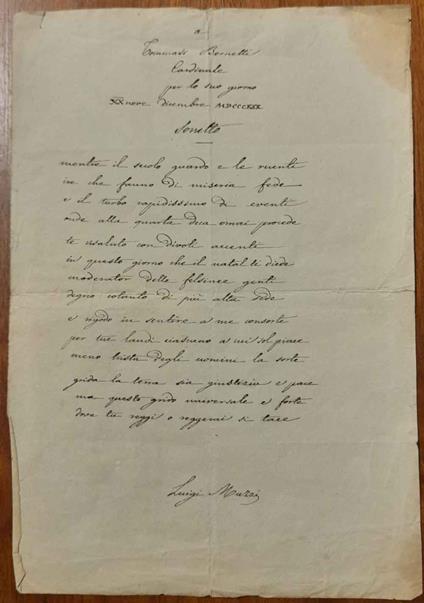 a
Tommaso Bernetti
Cardinale
per lo suo giorno
XXnove dicembre MDCCCXXX
Sonetto
mentre il suolo guardo e le ruente
ire che fanno di miseria fede
e il turbo rapidissimo di eventi
onde alla quarta dea omai procede
te risaluto con divoti accenti
in questo giorno che il natal ti diede
moderator delle felsinee genti
degno cotanto di più alta sede
e m'godo in sentire a me consorte
per tue laudi ciascuno a cui sol piace
meno trista degli uomini la sorte
grida la terra sia giustizia e pace
ma questo grido universale e forte
dove tu reggi o reggerai si tace
Luigi Muzzi